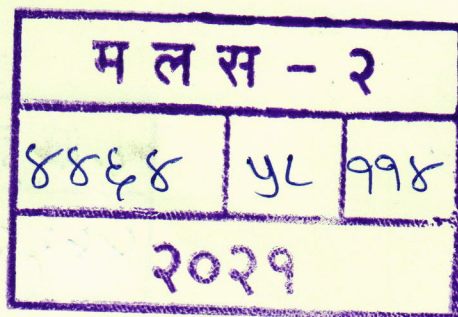 म ल स - २
४४६४ ५८ ११४
२०२१